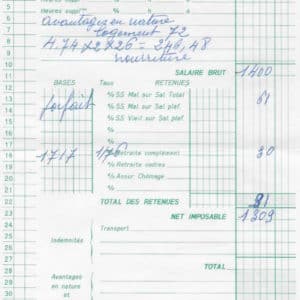 3 Heures suppl. à % h à
avantages en nature
logement 72
4.74 x 2 x 26 = 246,48
nourriture
10
11 SALAIRE BRUT 1400
12 BASES Taux
13 forfait % SS Mal sur Sal Total 61
14 % SS Mal sur Sal plaf.
15 % SS Vieil sur Sal plaf
16 %
17 %
18 1717 1,76 % Retraite complément 30
19 % Retraite cadres
20 % Assur Chômage
21 %
22 TOTAL DES RETENUES 91
23 NET IMPOSABLE 1309
24 Indemnités Transport
25
26
27 TOTAL
28 Avantages
29 en nature
30 et